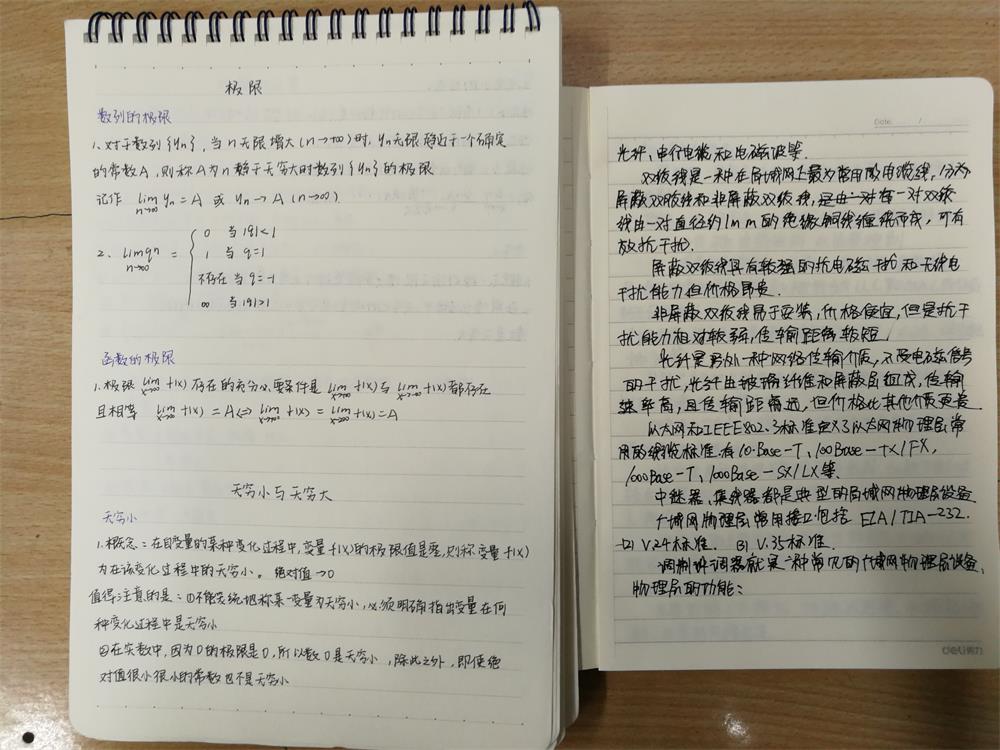 极限
数列的极限
1、对于数列{yn}，当n无限增大(n→+∞)时，yn无限趋近于一个确定
的常数A，则称A为n趋于无穷大时数列{yn}的极限
记作 lim n→∞ yn = A 或 yn → A (n→∞)
2、lim n→∞ q^n = { 0 当|q|<1
1 当q=1
不存在 当q=-1
∞ 当|q|>1
函数的极限
1.极限 lim x→∞ f(x) 存在的充分必要条件是 lim x→+∞ f(x)与 lim x→-∞ f(x)都存在
且相等 lim x→∞ f(x) = A ⇔ lim x→+∞ f(x) = lim x→-∞ f(x) = A
无穷小与无穷大
无穷小
1.概念：在自变量的某种变化过程中，变量f(x)的极限值是零，则称变量f(x)
为在该变化过程中的无穷小。绝对值→0
值得注意的是：①不能笼统地称某一变量为无穷小，必须明确指出变量在何
种变化过程中是无穷小
②在实数中，因为0的极限是0，所以数0是无穷小，除此之外，即使绝
对值很小很小的常数也不是无穷小
Date. /
光纤、串行电缆和电磁波等.
双绞线是一种在局域网上最为常用的电缆线，分为
屏蔽双绞线和非屏蔽双绞线，每一对双绞
线由一对直径约1mm的绝缘铜线缠绕而成，可有
效抗干扰.
屏蔽双绞线具有较强的抗电磁干扰和无线电
干扰能力但价格昂贵.
非屏蔽双绞线易于安装，价格便宜，但是抗干
扰能力相对较弱，传输距离较短.
光纤是另外一种网络传输介质，不受电磁信号
的干扰，光纤由玻璃纤维和屏蔽层组成，传输
速率高，且传输距离远，但价格比其他介质更贵
以太网和IEEE802.3标准定义了以太网物理层常
用的线缆标准.有10-Base-T，100Base-TX/FX，
1000Base-T，1000Base-SX/LX等.
中继器、集线器都是典型的局域网物理层设备
广域网物理层常用接口包括 EIA/TIA-232.
(2) V.24标准. (3) V.35标准.
调制解调器就是一种常见的广域网物理层设备.
物理层的功能：
deli得力